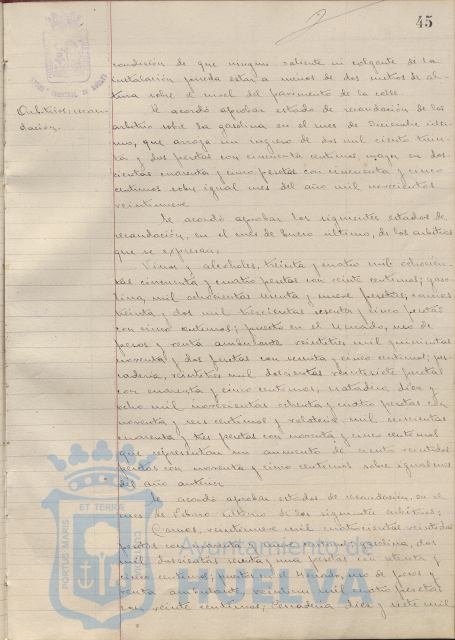 45
condición de que ningun saliente ni colgante de la
instalación pueda estar a menos de dos metros de al-
tura sobre el nivel del pavimento de la calle.
Arbitrios; recau-
dación.
Se acordó aprobar estado de recaudación de los
arbitrios sobre la gasolina en el mes de Diciembre últi-
mo, que arroja un ingreso de dos mil ciento trein-
ta y dos pesetas con cincuenta centimos, mayor en dos-
cientas cuarenta y cinco pesetas con cincuenta y cinco
centimos sobre igual mes del año mil novecientos
veintinueve
Se acordó aprobar los siguientes estados de
recaudación, en el mes de Enero último, de los arbitrios
que se expresan;
Vinos y alcoholes, treinta y cuatro mil ochocien-
tas cincuenta y cuatro pesetas con veinte centimos; gaso-
lina, mil ochocientas y nueve pesetas; carnes
treinta y dos mil trescientas sesenta y cinco pesetas
con cinco centimos; puestos en el Mercado, uso de
pesos y venta ambulante veintitres mil quinientas
noventa y dos pesetas con y cinco centimos; pes-
cadería, veintitres mil doscientas veintisiete pesetas
con cuarenta y cinco centimos, matadero, diez y
ocho mil novecientas ochenta y cuatro pesetas con
noventa y seis centimos y mil
cuarenta y tres pesetas con noventa y cinco centimos
que representan un aumento de ciento veintidos
pesetas con noventa y cinco centimos sobre igual mes
del año anterior
Se acordó aprobar estados de recaudación, en el
mes de Febrero último de los siguientes arbitrios;
Carnes, veintinueve mil cuatrocientas veintidos
pesetas con noventa y nueve centimos; gasolina, dos
mil doscientas sesenta y una pesetas con ochenta y
cinco centimos; puestos en el Mercado, uso de pesos y
venta ambulante, mil cuatro pesetas
con veinte centimos; Pescadería diez y siete mil
PORTUS MARIS
ET TERRÆ
CUSTODIA
Ayuntamiento de
HUELVA